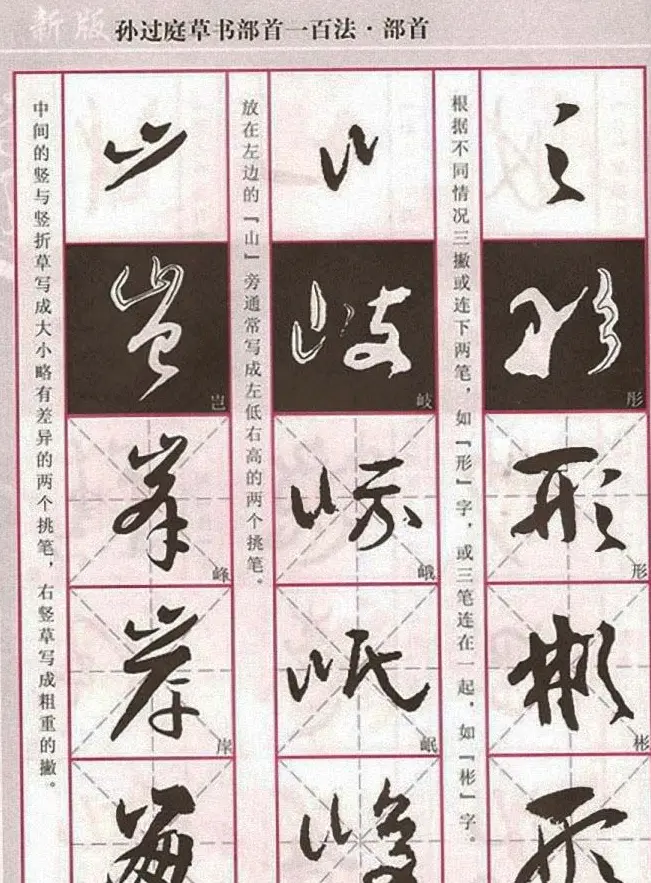 新版 孙过庭草书部首一百法·部首
根据不同情况三撇或连下两笔，如『形』字，或三笔连在一起，如『彬』字。
彤
形
彬
放在左边的『山』旁通常写成左低右高的两个挑笔。
岐
峨
岷
中间的竖与竖折草写成大小略有差异的两个挑笔，右竖草写成粗重的撇。
岂
峰
岸